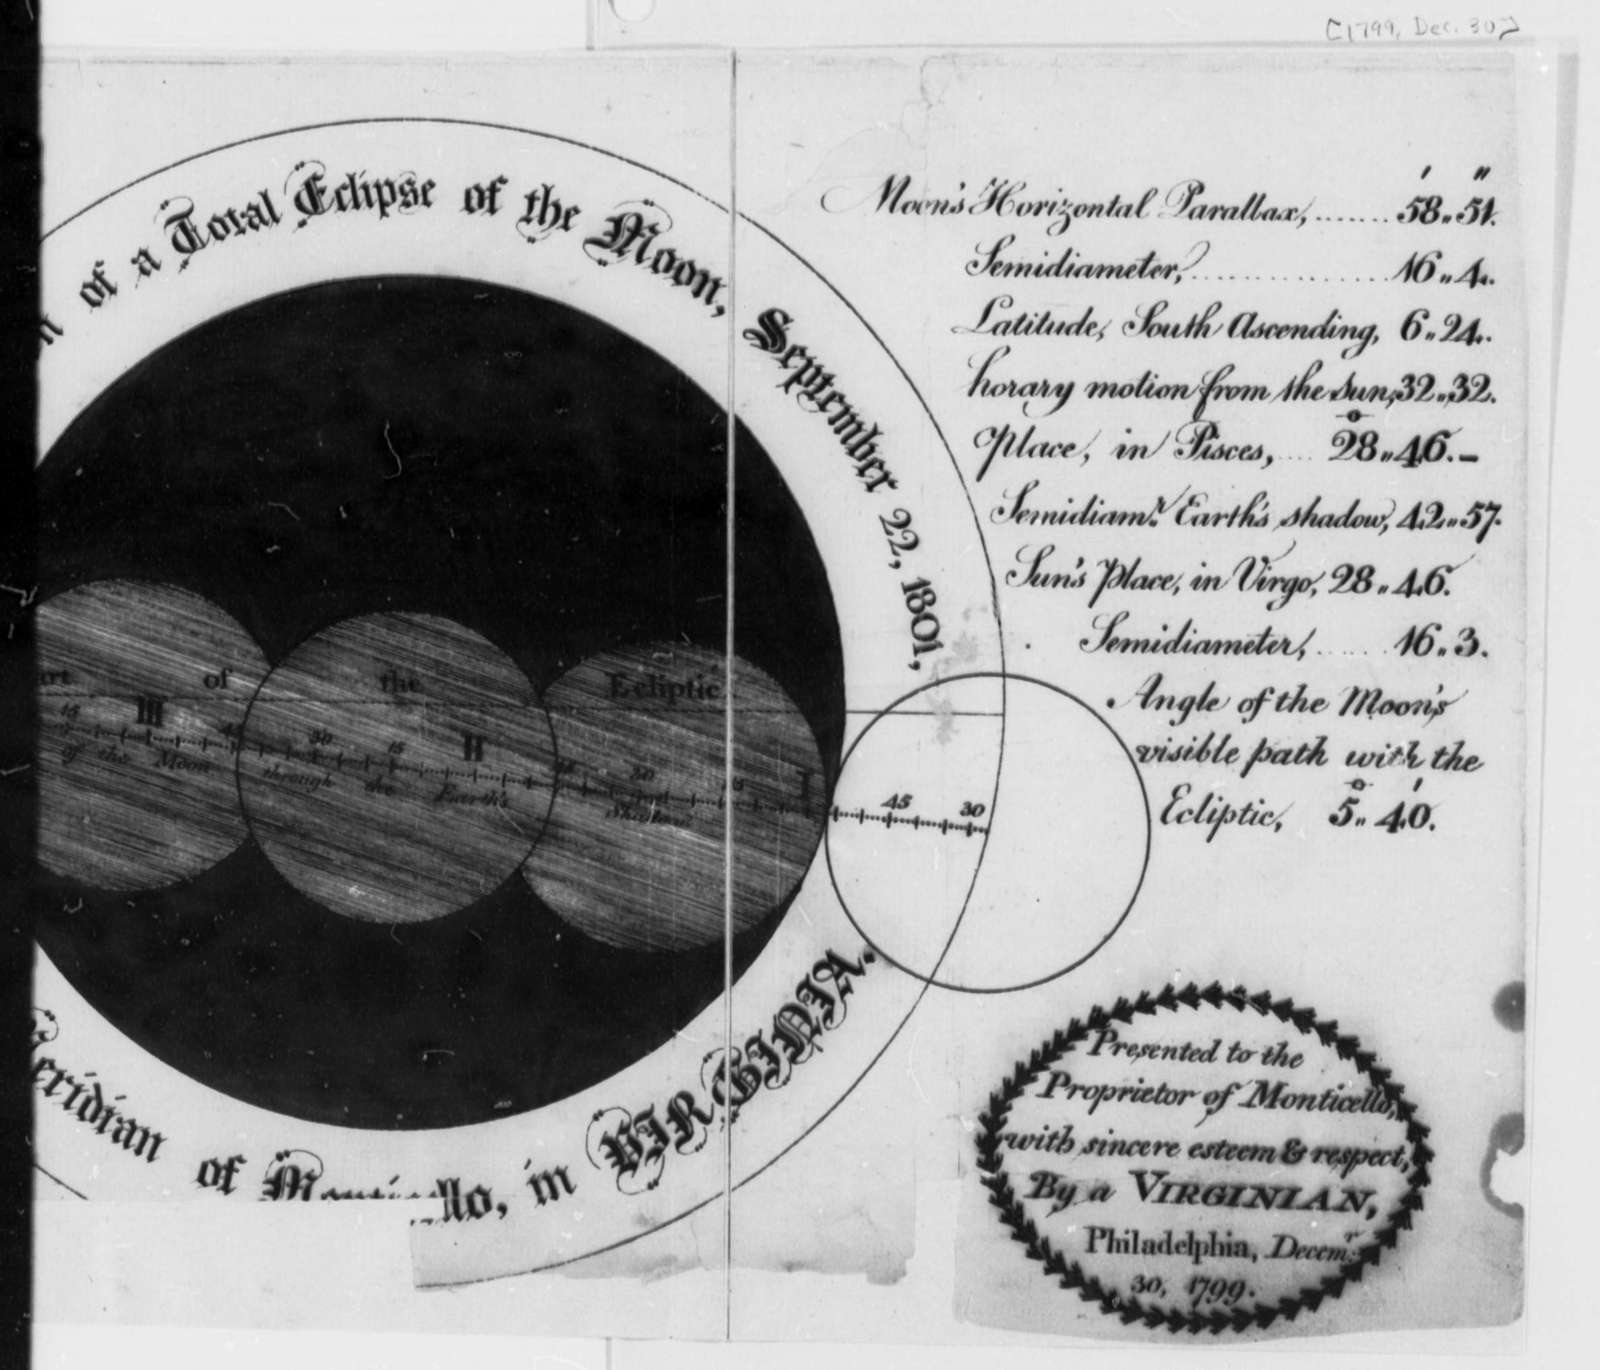 [1799, Dec. 30]
of a Total Eclipse of the Moon, September 22, 1801,
Meridian of Monticello, in VIRGINIA.
of the Ecliptic
15 III 45 30 15 II 45 30 15 I 45 30
of the Moon through the Earth's Shadow
Moon's Horizontal Parallax, ....... 58' „ 51".
Semidiameter, ............... 16 „ 4.
Latitude, South Ascending, 6 „ 24.
horary motion from the sun, 32 „ 32.
Place, in Pisces, .... 28° „ 46. –
Semidiamr. Earth's shadow, 42 „ 57.
Sun's Place, in Virgo, 28 „ 46.
Semidiameter, ...... 16 „ 3.
Angle of the Moon's
visible path with the
Ecliptic, 5° „ 40'.
Presented to the
Proprietor of Monticello,
with sincere esteem & respect,
By a VIRGINIAN,
Philadelphia, Decemr.
30, 1799.